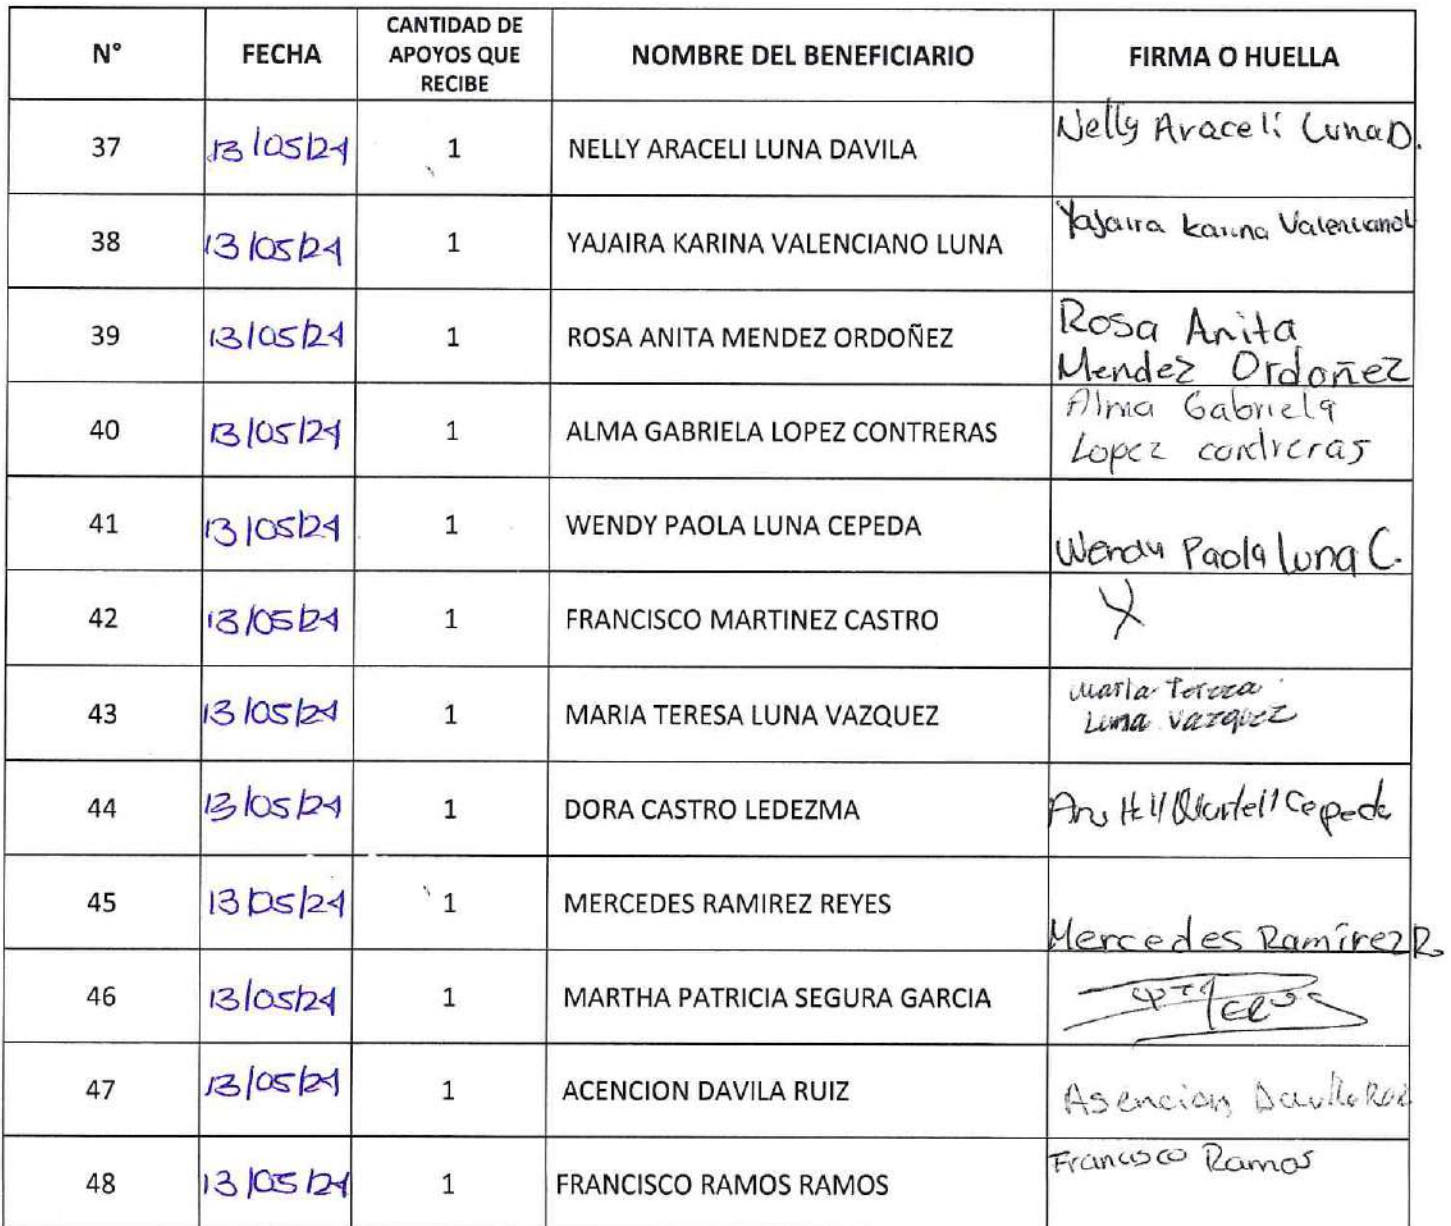 N° FECHA CANTIDAD DE APOYOS QUE RECIBE NOMBRE DEL BENEFICIARIO FIRMA O HUELLA
37 13/05/24 1 NELLY ARACELI LUNA DAVILA Nelly Araceli Luna D.
38 13/05/24 1 YAJAIRA KARINA VALENCIANO LUNA Yajaira Karina Valenciano L
39 13/05/24 1 ROSA ANITA MENDEZ ORDOÑEZ Rosa Anita
Mendez Ordoñez
40 13/05/24 1 ALMA GABRIELA LOPEZ CONTRERAS Alma Gabriela
Lopez contreras
41 13/05/24 1 WENDY PAOLA LUNA CEPEDA Wendy Paola Luna C.
42 13/05/24 1 FRANCISCO MARTINEZ CASTRO X
43 13/05/24 1 MARIA TERESA LUNA VAZQUEZ Maria Tereza
Luna Vazquez
44 13/05/24 1 DORA CASTRO LEDEZMA Cepeda
45 13/05/24 1 MERCEDES RAMIREZ REYES Mercedes Ramírez R.
46 13/05/24 1 MARTHA PATRICIA SEGURA GARCIA
47 13/05/24 1 ACENCION DAVILA RUIZ Asencion Davila Ruiz
48 13/05/24 1 FRANCISCO RAMOS RAMOS Francisco Ramos